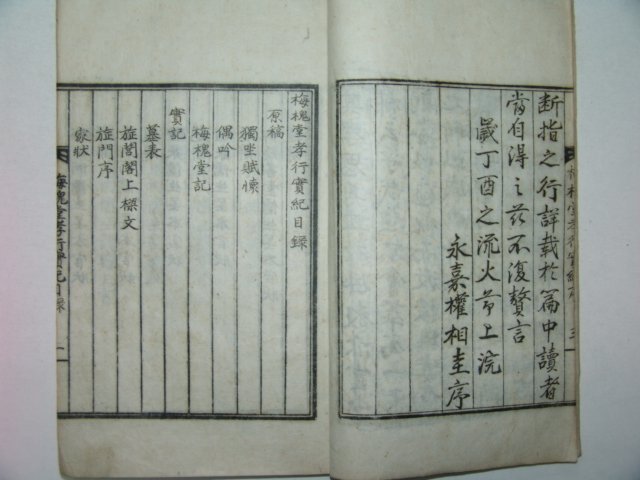 断指之行詳載於篇中讀者
當自得之玆不復贅言
歲丁酉之流火節上浣
永嘉權相圭序
梅槐堂孝行實紀目録
原稿
獨坐賦懷
偶吟
梅槐堂記
實記
墓表
旌閭閣上樑文
旌門序
家狀